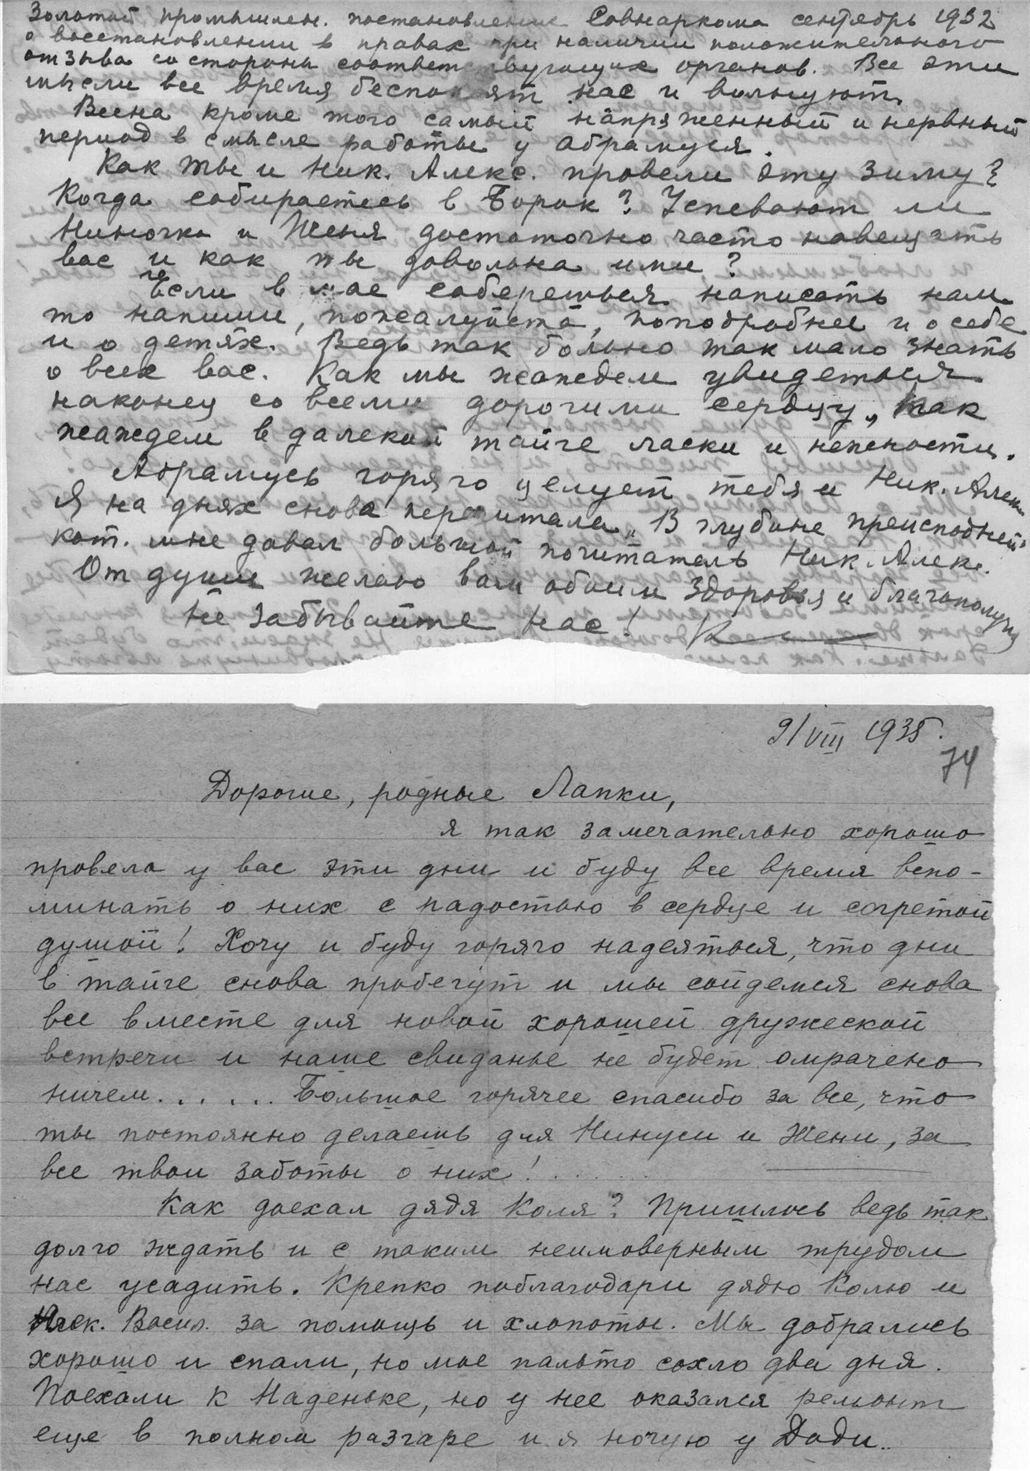 Золотой промышлен. постановление Совнаркома сентябрь 1932
о восстановлении в правах при наличии положительного
отзыва со стороны соответствующих органов. Все эти
мысли все время беспокоят нас и волнуют.
Весна кроме того самый напряженный и нервный
период в смысле работы у Абрамуся.
Как ты и Ник. Алекс. провели эту зиму?
Когда собираетесь в Борок? Успевают ли
Ниночка и Женя достаточно часто навещать
вас и как ты довольна ими?
Если в мае соберешься написать нам
то напиши, пожалуйста, поподробнее и о себе
и о детях. Ведь так больно так мало знать
о всех вас. Как мы жаждем увидеться
наконец со всеми дорогими сердцу, как
жаждем в далекой тайге ласки и нежности.
Абрамусь горячо целует тебя и Ник. Алекс.
Я на днях снова перечитала „В глубине преисподней"
кот. мне давал большой почитатель Ник. Алек.
От души желаю вам обоим здоровья и благополучия
Не забывайте нас!
9/VIII 1935.
74
Дорогие, родные Лапки,
я так замечательно хорошо
провела у вас эти дни и буду все время вспо-
минать о них с радостью в сердце и согретой
душой! Хочу и буду горячо надеяться, что дни
в тайге снова пробегут и мы сойдемся снова
все вместе для новой хорошей дружеской
встречи и наше свиданье не будет омрачено
ничем...... Большое горячее спасибо за все, что
ты постоянно делаешь для Нинуси и Жени, за
все твои заботы о них!......
Как доехал дядя Коля? Пришлось ведь так
долго ждать и с таким неимоверным трудом
нас усадить. Крепко поблагодари дядю Колю и
Васил. за помощь и хлопоты. Мы добрались
хорошо и спали, но мое пальто сохло два дня.
Поехали к Наденьке, но у нее оказался ремонт
еще в полном разгаре и я ночую у Доди..